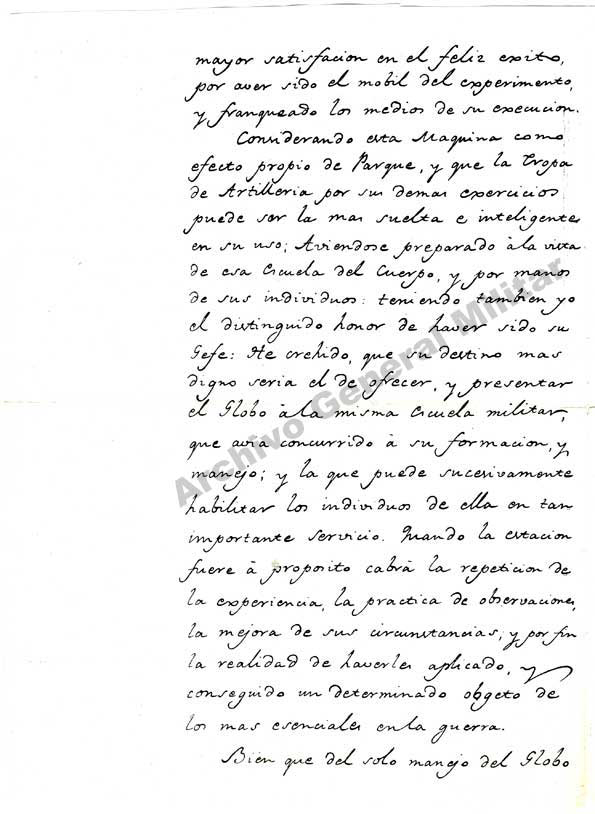 mayor satisfacion en el feliz exito,
por aver sido el mobil del experimento,
y franqueado los medios de su execucion.
Considerando esta Maquina como
efecto propio de Parque, y que la Tropa
de Artilleria por sus demas exercicios
puede ser la mas suelta e inteligente
en su uso; Aviendose preparado à la vista
de esa Escuela del Cuerpo, y por manos
de sus individuos: teniendo tambien yo
el distinguido honor de haver sido su
Gefe: He crehido, que su destino mas
digno seria el de ofrecer, y presentar
el Globo à la misma Escuela militar,
que avia concurrido à su formacion, y
manejo; y la que puede sucesivamente
habilitar los individuos de ella en tan
importante servicio. Quando la estacion
fuere à proposito cabrà la repeticion de
la experiencia, la practica de observaciones,
la mejora de sus circunstancias; y por fin
la realidad de haverles aplicado, y
conseguido un determinado obgeto de
los mas esenciales en la guerra.
Bien que del solo manejo del Globo
Archivo General Militar